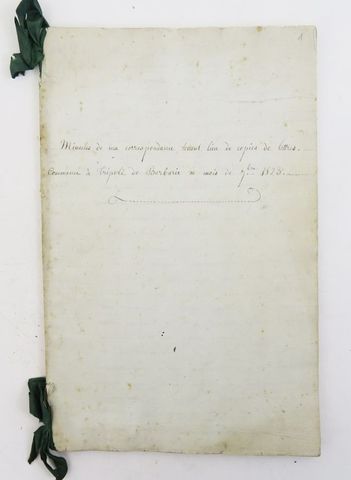 1
Minutes de ma correspondance tenant lieu de copies de lettres.
Commencé à Tripoli de Barbarie au mois de 7bre 1823.